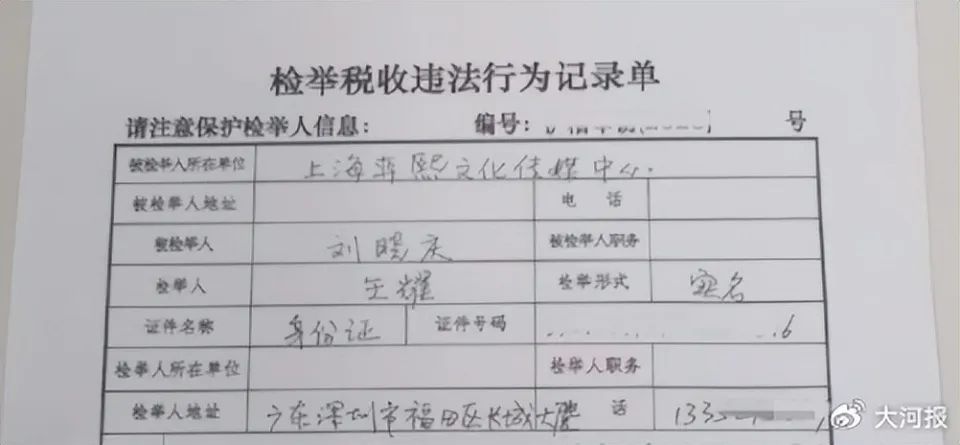 检举税收违法行为记录单
请注意保护检举人信息： 编号： 号
被检举人所在单位 上海莽熙文化传媒中心.
被检举人地址 电 话
被检举人 刘晓庆 被检举人职务
检举人 王耀 检举形式 实名
证件名称 身份证 证件号码 6
检举人所在单位 检举人职务
检举人地址 广东深圳市福田区长城大 话 133
大河报